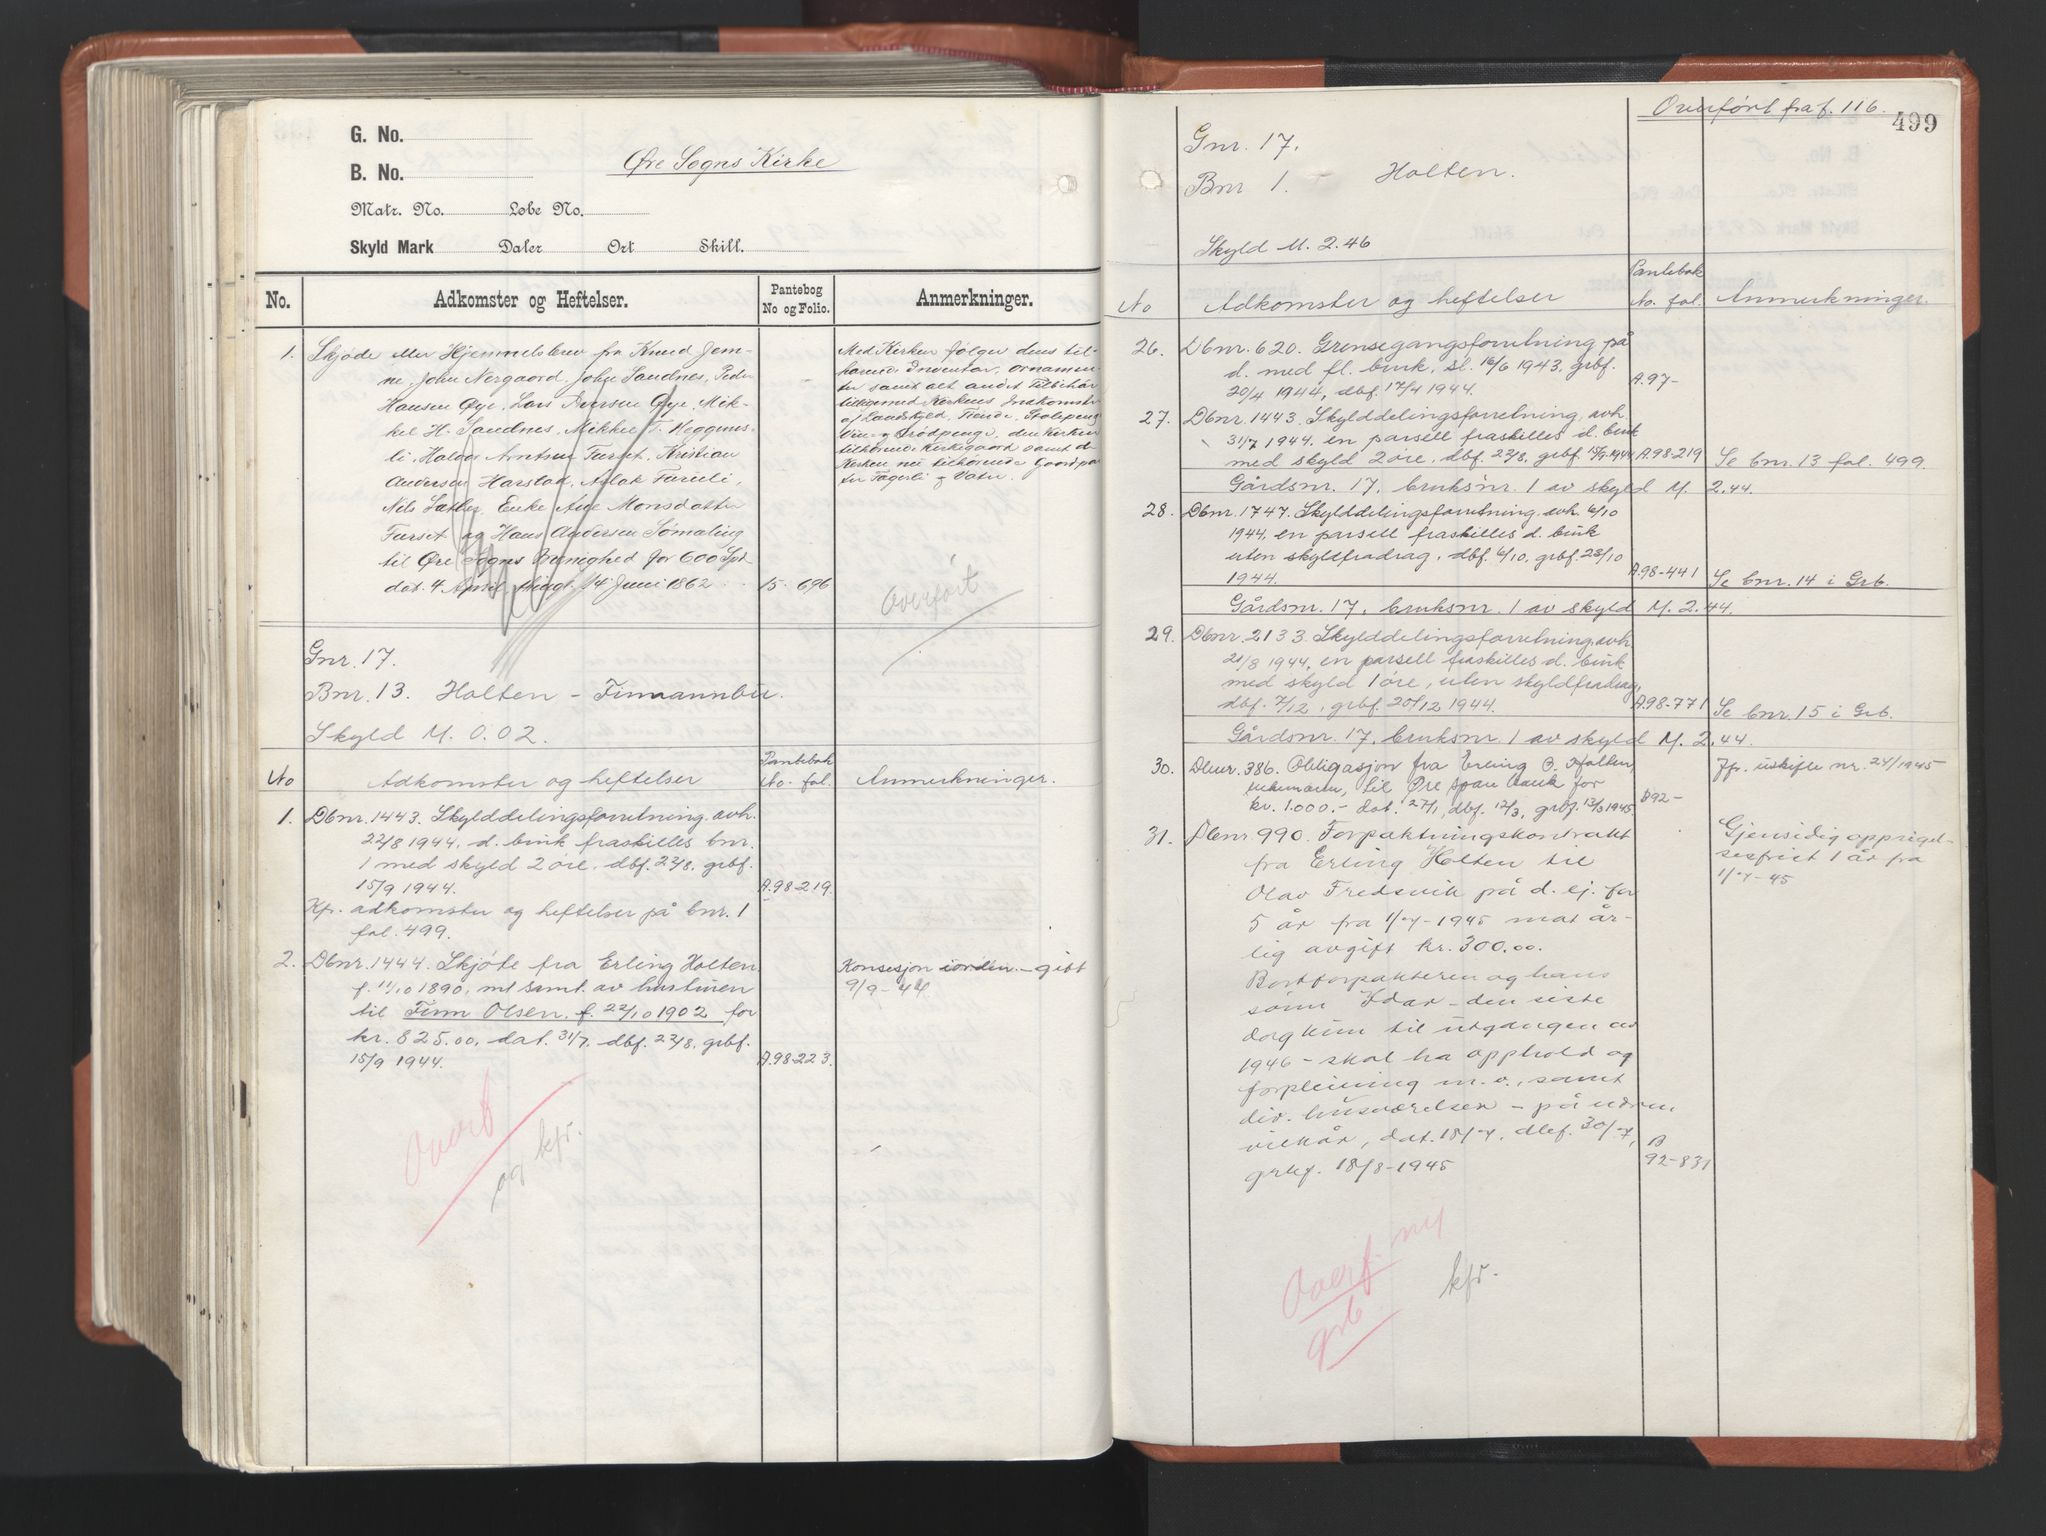 G. No.
B. No.
Øre Sogns Kirke
Matr. No. Løbe No.
Skyld Mark Daler Ort Skill.
No. Adkomster og Heftelser. Pantebog No og Folio. Anmerkninger.
1. Skjøde eller Hjemmelsbrev fra Knud Jem-
ne, John Nergaard, John Sandnes, Peder
Hansen Øye, Lars Iversen Øye, Mik-
kel H. Sandnes, Mikkel T. Heggems-
li, Halvor Arntsen Furset, Kristian
Andersen Harstad, Aslak Faruli,
Nils Sæther, Enke Ane Monsdatter
Furset og Hans Andersen
til Øre Sogns Menighed for 600 Spd
dat. 4 April, thingl. 14 Juni 1862 15-696
Med Kirken følger dens til-
hørende Inventar, ornamen-
ter samt alt andet Tilbehør
tilligemed Kirkens Indkomster
af Landskyld, Tiende,
Vin- og Brødpenge, den Kirken
tilhørende Kirkegaard samt d
Kirken nu tilhørende Gaardpar
ter Fagerli & Vatn.
Overført
Gnr. 17.
Bnr. 13. Holten – Finnannbu.
Skyld M. 0.02.
No Adkomster og heftelser Pantebok No. fol. Anmerkninger.
1. Dbnr. 1443. Skylddelingsforretning, avh.
22/8 1944, d. bruk fraskilles bnr.
1 med skyld 2 øre, dbf. 23/8, grbf.
15/9 1944. A.98-219.
Kfr. adkomster og heftelser på bnr. 1
fol. 499.
2. Dbnr. 1444. Skjøte fra Erling Holten,
f. 11/10 1890, m/ samt. av hustruen
til Finn Olsen, f. 22/10 1902 for
kr. 825.00, dat. 31/7, dbf. 23/8, grbf.
15/9 1944. A.98-223.
Konsesjon iorden – gitt
9/9-44
Overf.
og kfr.
Overført fra f. 116.
499
Gnr. 17.
Bnr 1. – Holten.
Skyld M. 2.46
No Adkomster og heftelser Pantebok No. fol. Anmerkninger.
26. Dbnr. 620. Grensegangsforretning på
d. med fl. bruk, sl. 16/6 1943, grbf.
20/4 1944, dbf. 17/4 1944. A.97-
27. Dbnr. 1443. Skylddelingsforretning, avh.
31/7 1944, en parsell fraskilles d. bruk
med skyld 2 øre, dbf. 23/8, grbf. 15/9 1944 A.98-219 Se bnr. 13 fol. 499.
Gårdsnr. 17, bruksnr. 1 av skyld M. 2.44.
28. Dbnr. 1747. Skylddelingsforretning, avh. 6/10
1944, en parsell fraskilles d. bruk
uten skyldfradrag, dbf. 6/10, grbf. 23/10
1944. A.98-441 Se bnr. 14 i Grb.
Gårdsnr. 17, bruksnr. 1 av skyld M. 2.44.
29. Dbnr. 2133. Skylddelingsforretning, avh
21/8 1944, en parsell fraskilles d. bruk
med skyld 1 øre, uten skyldfradrag,
dbf. 7/12, grbf. 20/12 1944. A.98-771 Se bnr. 15 i Grb.
Gårdsnr. 17, bruksnr. 1 av skyld M. 2.44.
30. Dbnr. 386. Obligasjon fra Erling O. Holten,
enkemann, til Øre sparebank for
kr. 1.000.- dat. 27/1, dbf. 12/3, grbf. 13/3 1945. B92- Jfr. utskifte nr. 24/1945
31. Dbnr. 990. Forpaktningskontrakt
fra Erling Holten til
Olav Fredsvik på d. ej. for
5 år fra 1/7-1945 mot år-
lig avgift kr. 300.00.
Bortforpakteren og hans
sønn Idar – den siste
dog kun til utgangen av
1946 – skal ha opphold og
forpleining m.v., samt
div. husværelser – på nærm.
vilkår, dat. 18/7, dbf. 30/7,
grbf. 18/8-1945 B 92-831
Gjensidig opprigel-
sesfrist 1 år fra
1/7-45
Overf. ny
grb
kfr.